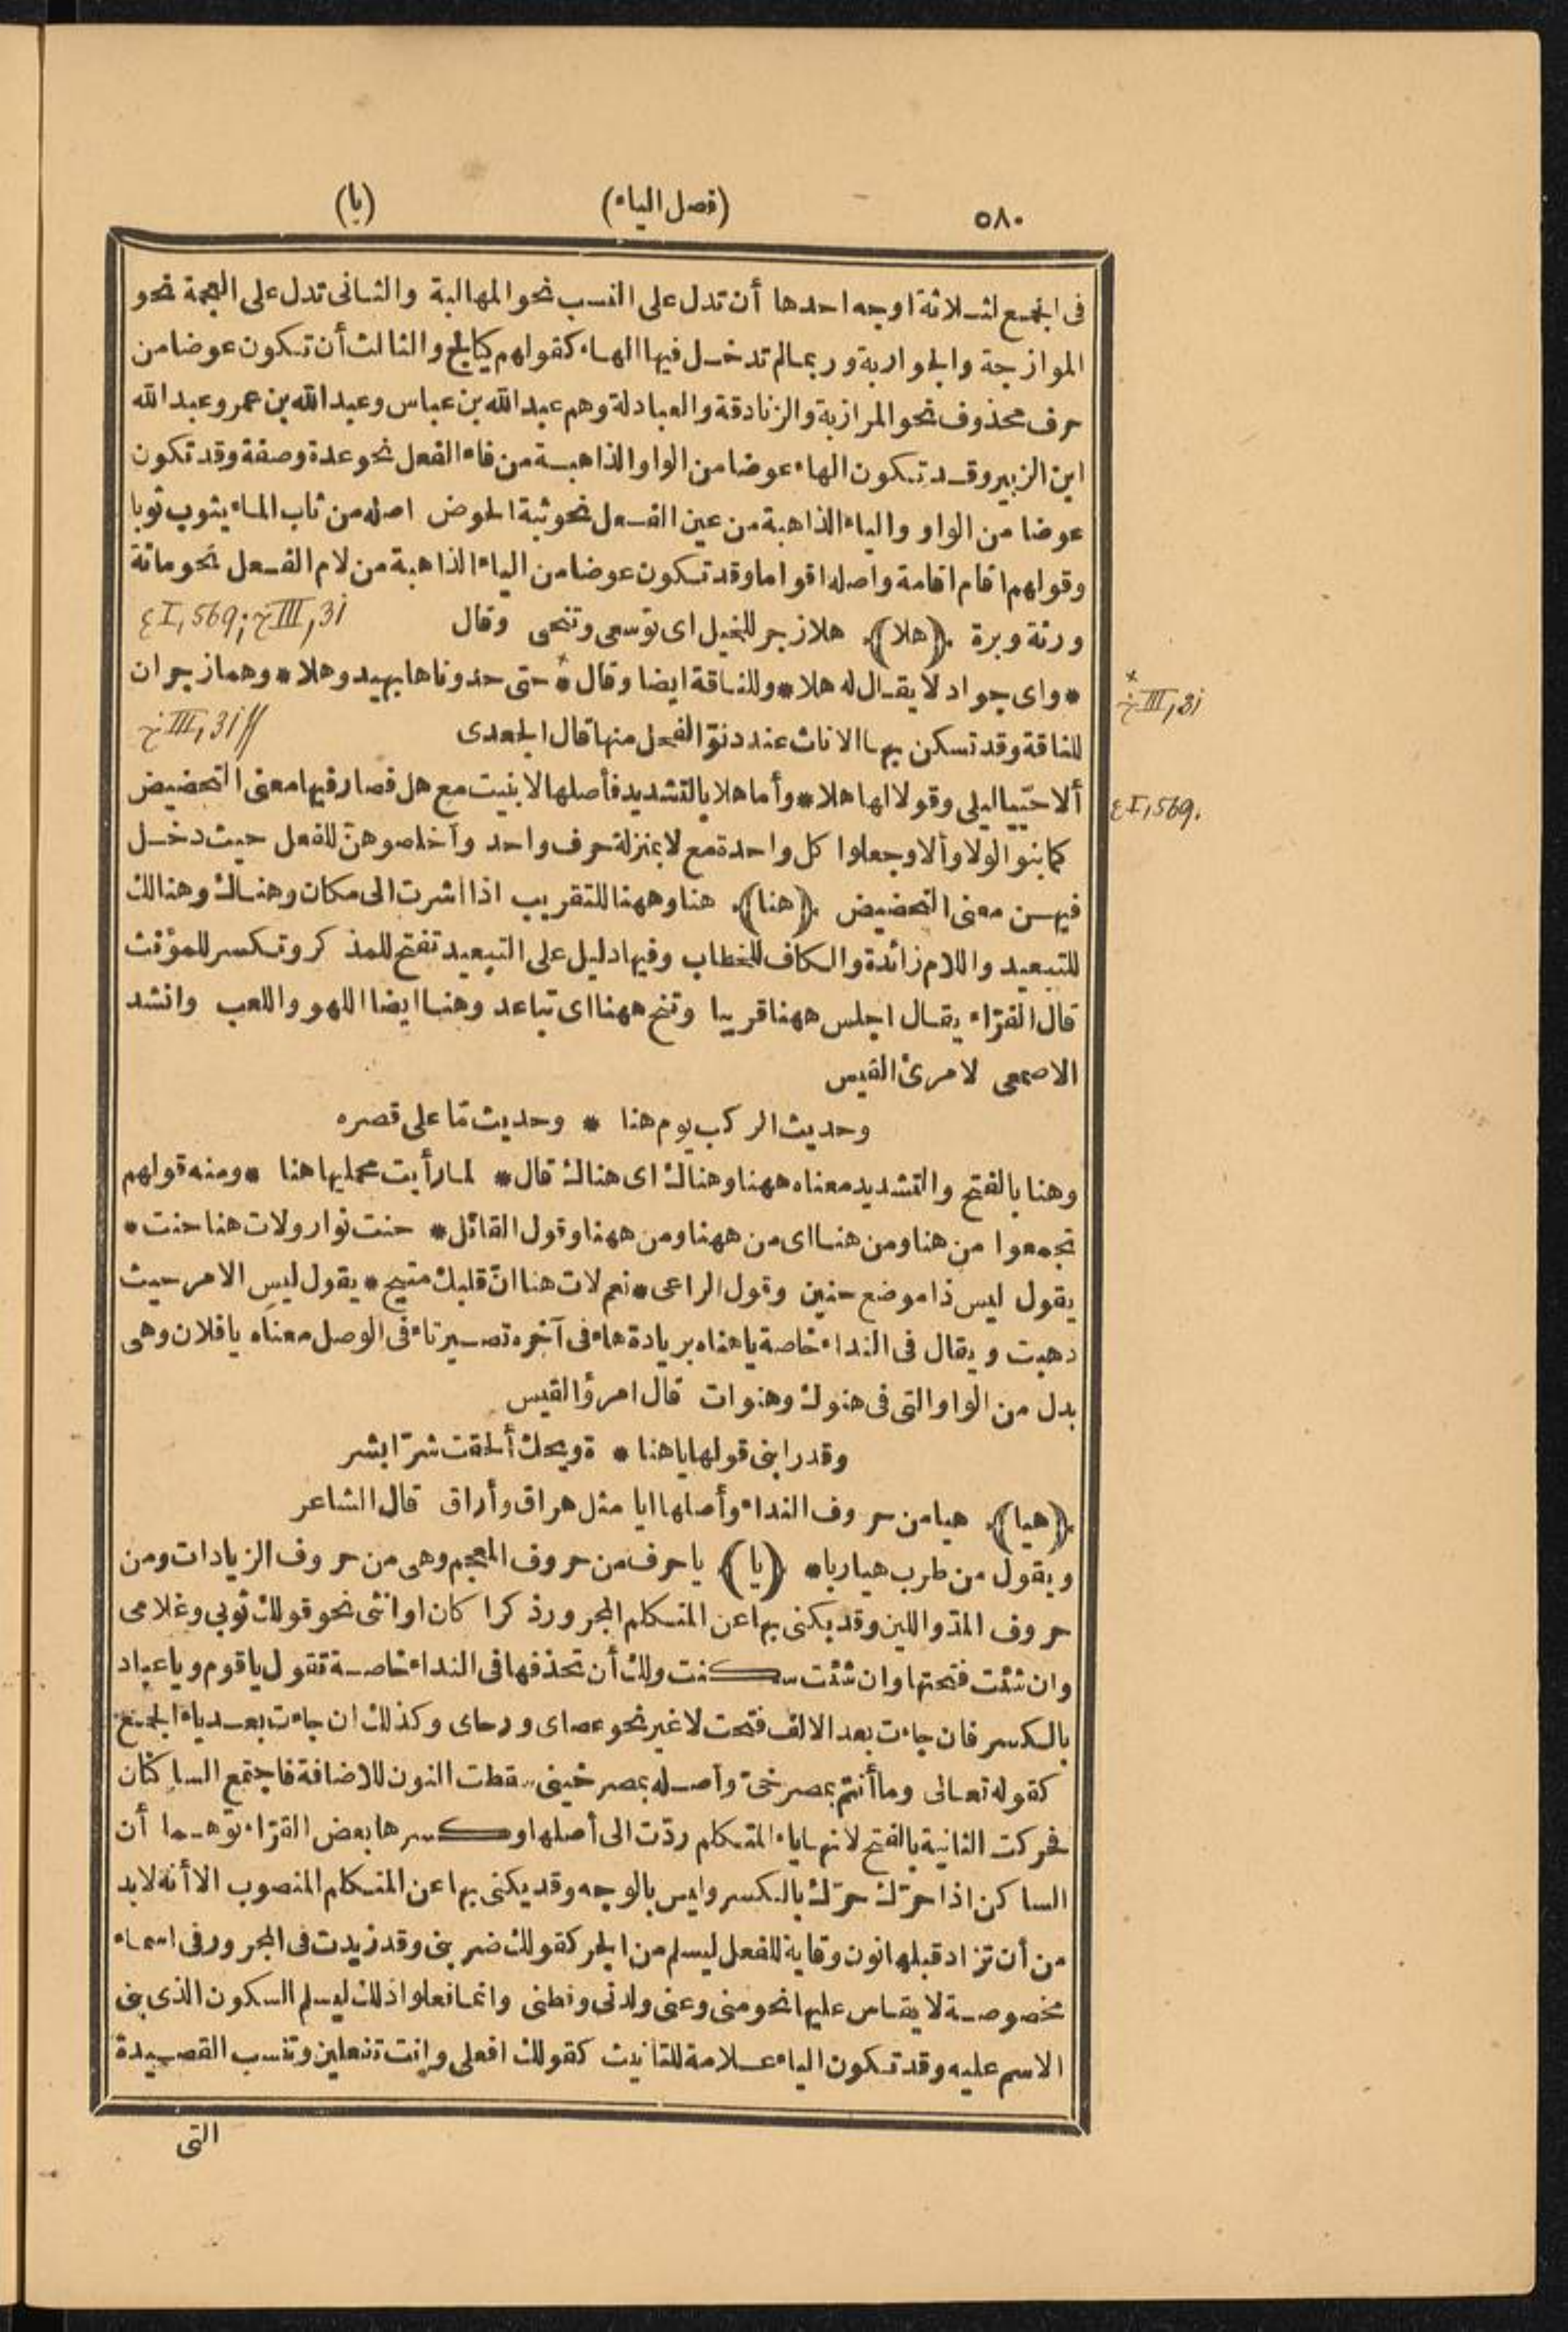 ٥٨٠ (فصل الياء) (يا)
فى الجمع لثلاثة اوجه احدها أن تدل على النسب نحو المهالبة والثانى تدل على العجمة نحو
الموازجة والجواربة وربما لم تدخل فيها الهاء كقولهم كيالج والثالث أن تكون عوضا من
حرف محذوف نحو المرازبة والزنادقة والعبادلة وهم عبدالله بن عباس وعبدالله بن عمر وعبدالله
ابن الزبير وقد تكون الهاء عوضا من الواو الذاهبة من فاء الفعل نحو عدة وصفة وقد تكون
عوضا من الواو والياء الذاهبة من عين الفعل نحو ثبة الحوض اصله من ثاب الماء يثوب ثوبا
وقولهم اقام اقامة واصله اقواما وقد تكون عوضا من الياء الذاهبة من لام الفعل نحو مائة
ورئة وبرة ﴿هلا﴾ هلا زجر للخيل اى توسعى وتنحى وقال ع I, 569; خ III, 31
* واى جواد لا يقال له هلا * وللناقة ايضا وقال * حتى حدوناها بهيد وهلا * وهما زجران
خ III, 31
للناقة وقد تسكن بها الاناث عند دنوّ الفحل منها قال الجعدى خ III, 31
ألا حيّيا ليلى وقولا لها هلا * وأما هلا بالتشديد فأصلها لا بنيت مع هل فصار فيها معنى التحضيض
ع I, 569.
كما بنوا لولا وألا وجعلوا كل واحدة مع لا بمنزلة حرف واحد وأخلصوهنّ للفعل حيث دخل
فيهن معنى التحضيض ﴿هنا﴾ هنا وههنا للتقريب اذا اشرت الى مكان وهناك وهنالك
للتبعيد واللام زائدة والكاف للخطاب وفيها دليل على التبعيد تفتح للمذكر وتكسر للمؤنث
قال الفرّاء يقال اجلس ههنا قريبا وتنح ههنا اى تباعد وهنا ايضا اللهو واللعب وانشد
الاصمعى لامرئ القيس
وحديث الركب يوم هنا * وحديث مّا على قصره
وهنا بالفتح والتشديد معناه ههنا وهناك اى هناك قال * لما رأيت محمليها هنا * ومنه قولهم
تجمعوا من هنا ومن هنا اى من ههنا ومن ههنا وقول القائل * حنت نوار ولات هنا حنت *
يقول ليس ذا موضع حنين وقول الراعى * نعم لات هنا انّ قلبك متيح * يقول ليس الامر حيث
ذهبت ويقال فى النداء خاصة ياهناه بزيادة هاء فى آخره تصير تاء فى الوصل معناه يا فلان وهى
بدل من الواو التى فى هنوك وهنوات قال امرؤ القيس
وقد رابنى قولها ياهنا * ة ويحك ألحقت شرّا بشر
﴿هيا﴾ هيا من حروف النداء وأصلها ايا مثل هراق وأراق قال الشاعر
ويقول من طرب هيا ربا * ﴿يا﴾ يا حرف من حروف المعجم وهى من حروف الزيادات ومن
حروف المدّ واللين وقد يكنى بها عن المتكلم المجرور ذكرا كان او انثى نحو قولك ثوبى وغلامى
وان شئت فتحتها وان شئت سكنت ولك أن تحذفها فى النداء خاصة تقول يا قوم ويا عباد
بالكسر فان جاءت بعد الالف فتحت لا غير نحو عصاى ورحاى وكذلك ان جاءت بعد ياء الجمع
كقوله تعالى وما أنتم بمصرخىّ وأصله بمصرخينى سقطت النون للاضافة فاجتمع الساكنان
فحركت الثانية بالفتح لانها ياء المتكلم ردّت الى أصلها وكسرها بعض القرّاء توهما أن
الساكن اذا حرّك حرّك بالكسر وليس بالوجه وقد يكنى بها عن المتكلم المنصوب الا أنه لابد
من أن تزاد قبلها نون وقاية للفعل ليسلم من الجر كقولك ضربنى وقد زيدت فى المجرور فى اسماء
مخصوصة لا يقاس عليها نحو منى وعنى ولدنى وقطنى وانما فعلوا ذلك ليسلم السكون الذى بنى
الاسم عليه وقد تكون الياء علامة للتانيث كقولك افعلى وانت تفعلين وتنسب القصيدة
التى